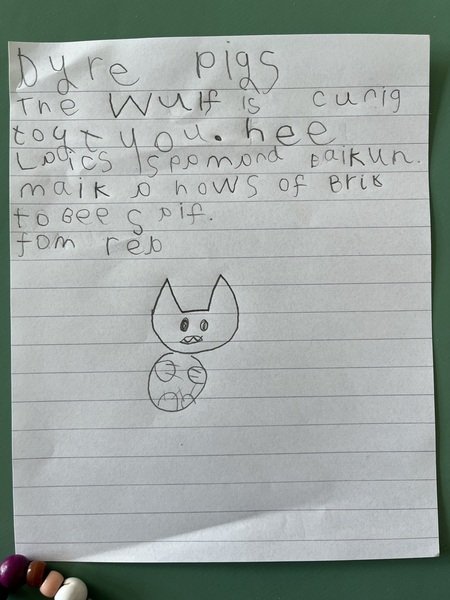 Dyre pigs
The Wulf is curig
toyt you. hee
Logics spomond Baikun.
maik a hows of Brik
to Bee s aif.
fom reb